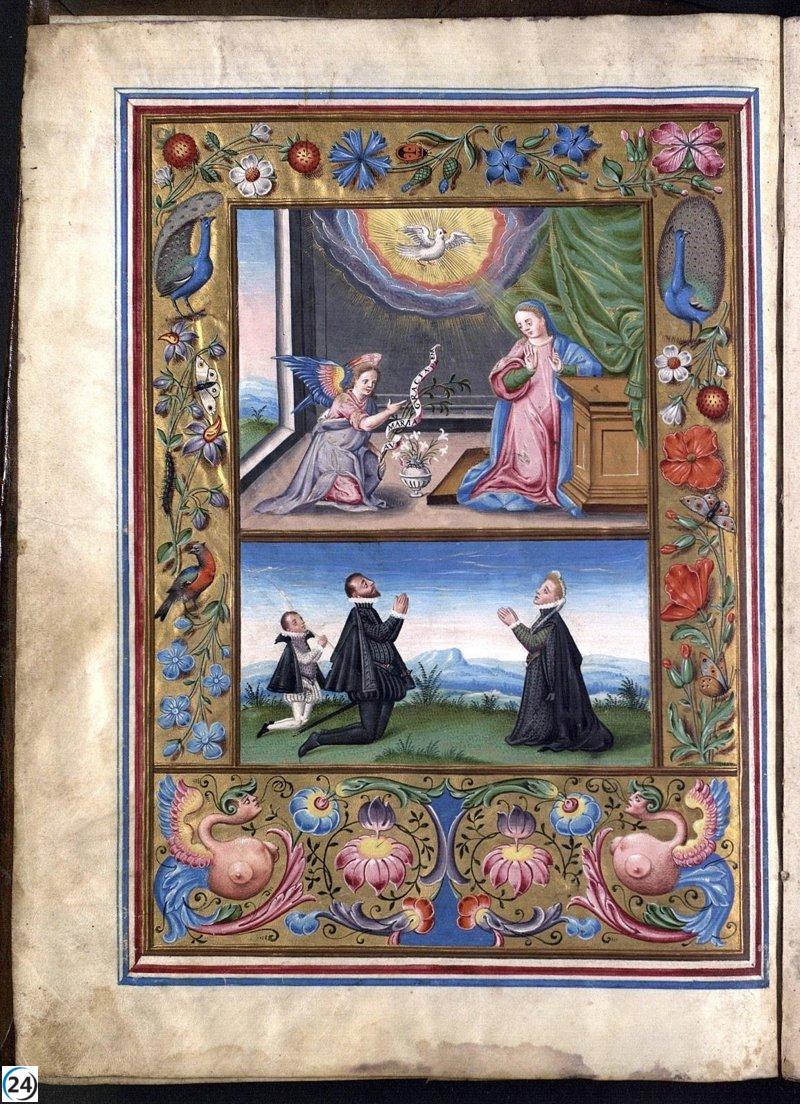 AVE MARIA GRACIA
24